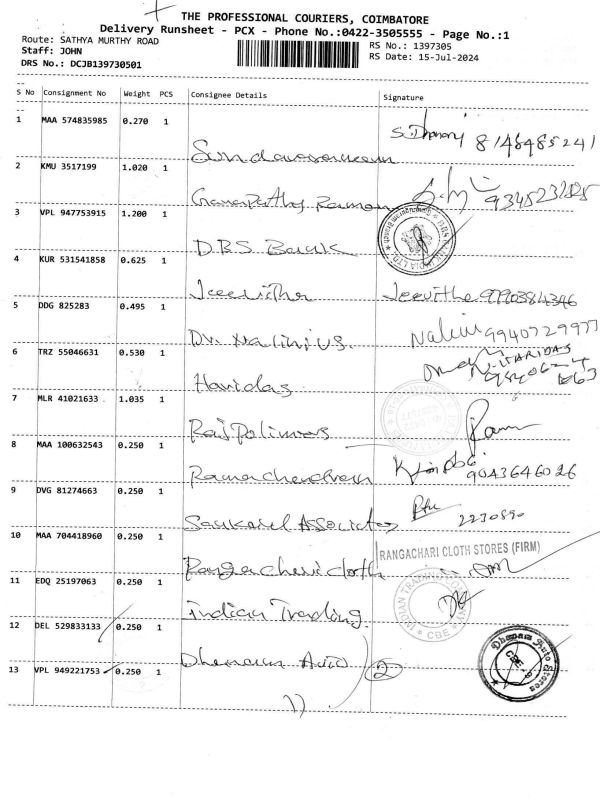 THE PROFESSIONAL COURIERS, COIMBATORE
Delivery Runsheet - PCX - Phone No.:0422-3505555 - Page No.:1
Route: SATHYA MURTHY ROAD
Staff: JOHN
DRS No.: DCJB139730501
RS No.: 1397305
RS Date: 15-Jul-2024
S No Consignment No Weight PCS Consignee Details Signature
1 MAA 574835985 0.270 1 S. 8148485241
2 KMU 3517199 1.020 1 Ganapathy Raman
3 VPL 947753915 1.200 1 DBS Bank
4 KUR 531541858 0.625 1 Jeevitha Jeevitha
5 DDG 825283 0.495 1 Dr. Nalini U.S. Nalini 9940729977
6 TRZ 55046631 0.530 1 Haridas HARIDAS
7 MLR 41021633 1.035 1 Raj Polimers Ram
8 MAA 100632543 0.250 1 Ramachandran 9043646026
9 DVG 81274663 0.250 1 Sankaral Associates 2230890
10 MAA 704418960 0.250 1 Rangachari cloth RANGACHARI CLOTH STORES (FIRM)
11 EDQ 25197063 0.250 1 Indian Trading INDIAN TRADING CBE
12 DEL 529833133 0.250 1 Dhanam Auto Dhanam Auto Stores CBE
13 VPL 949221753 0.250 1 2
11